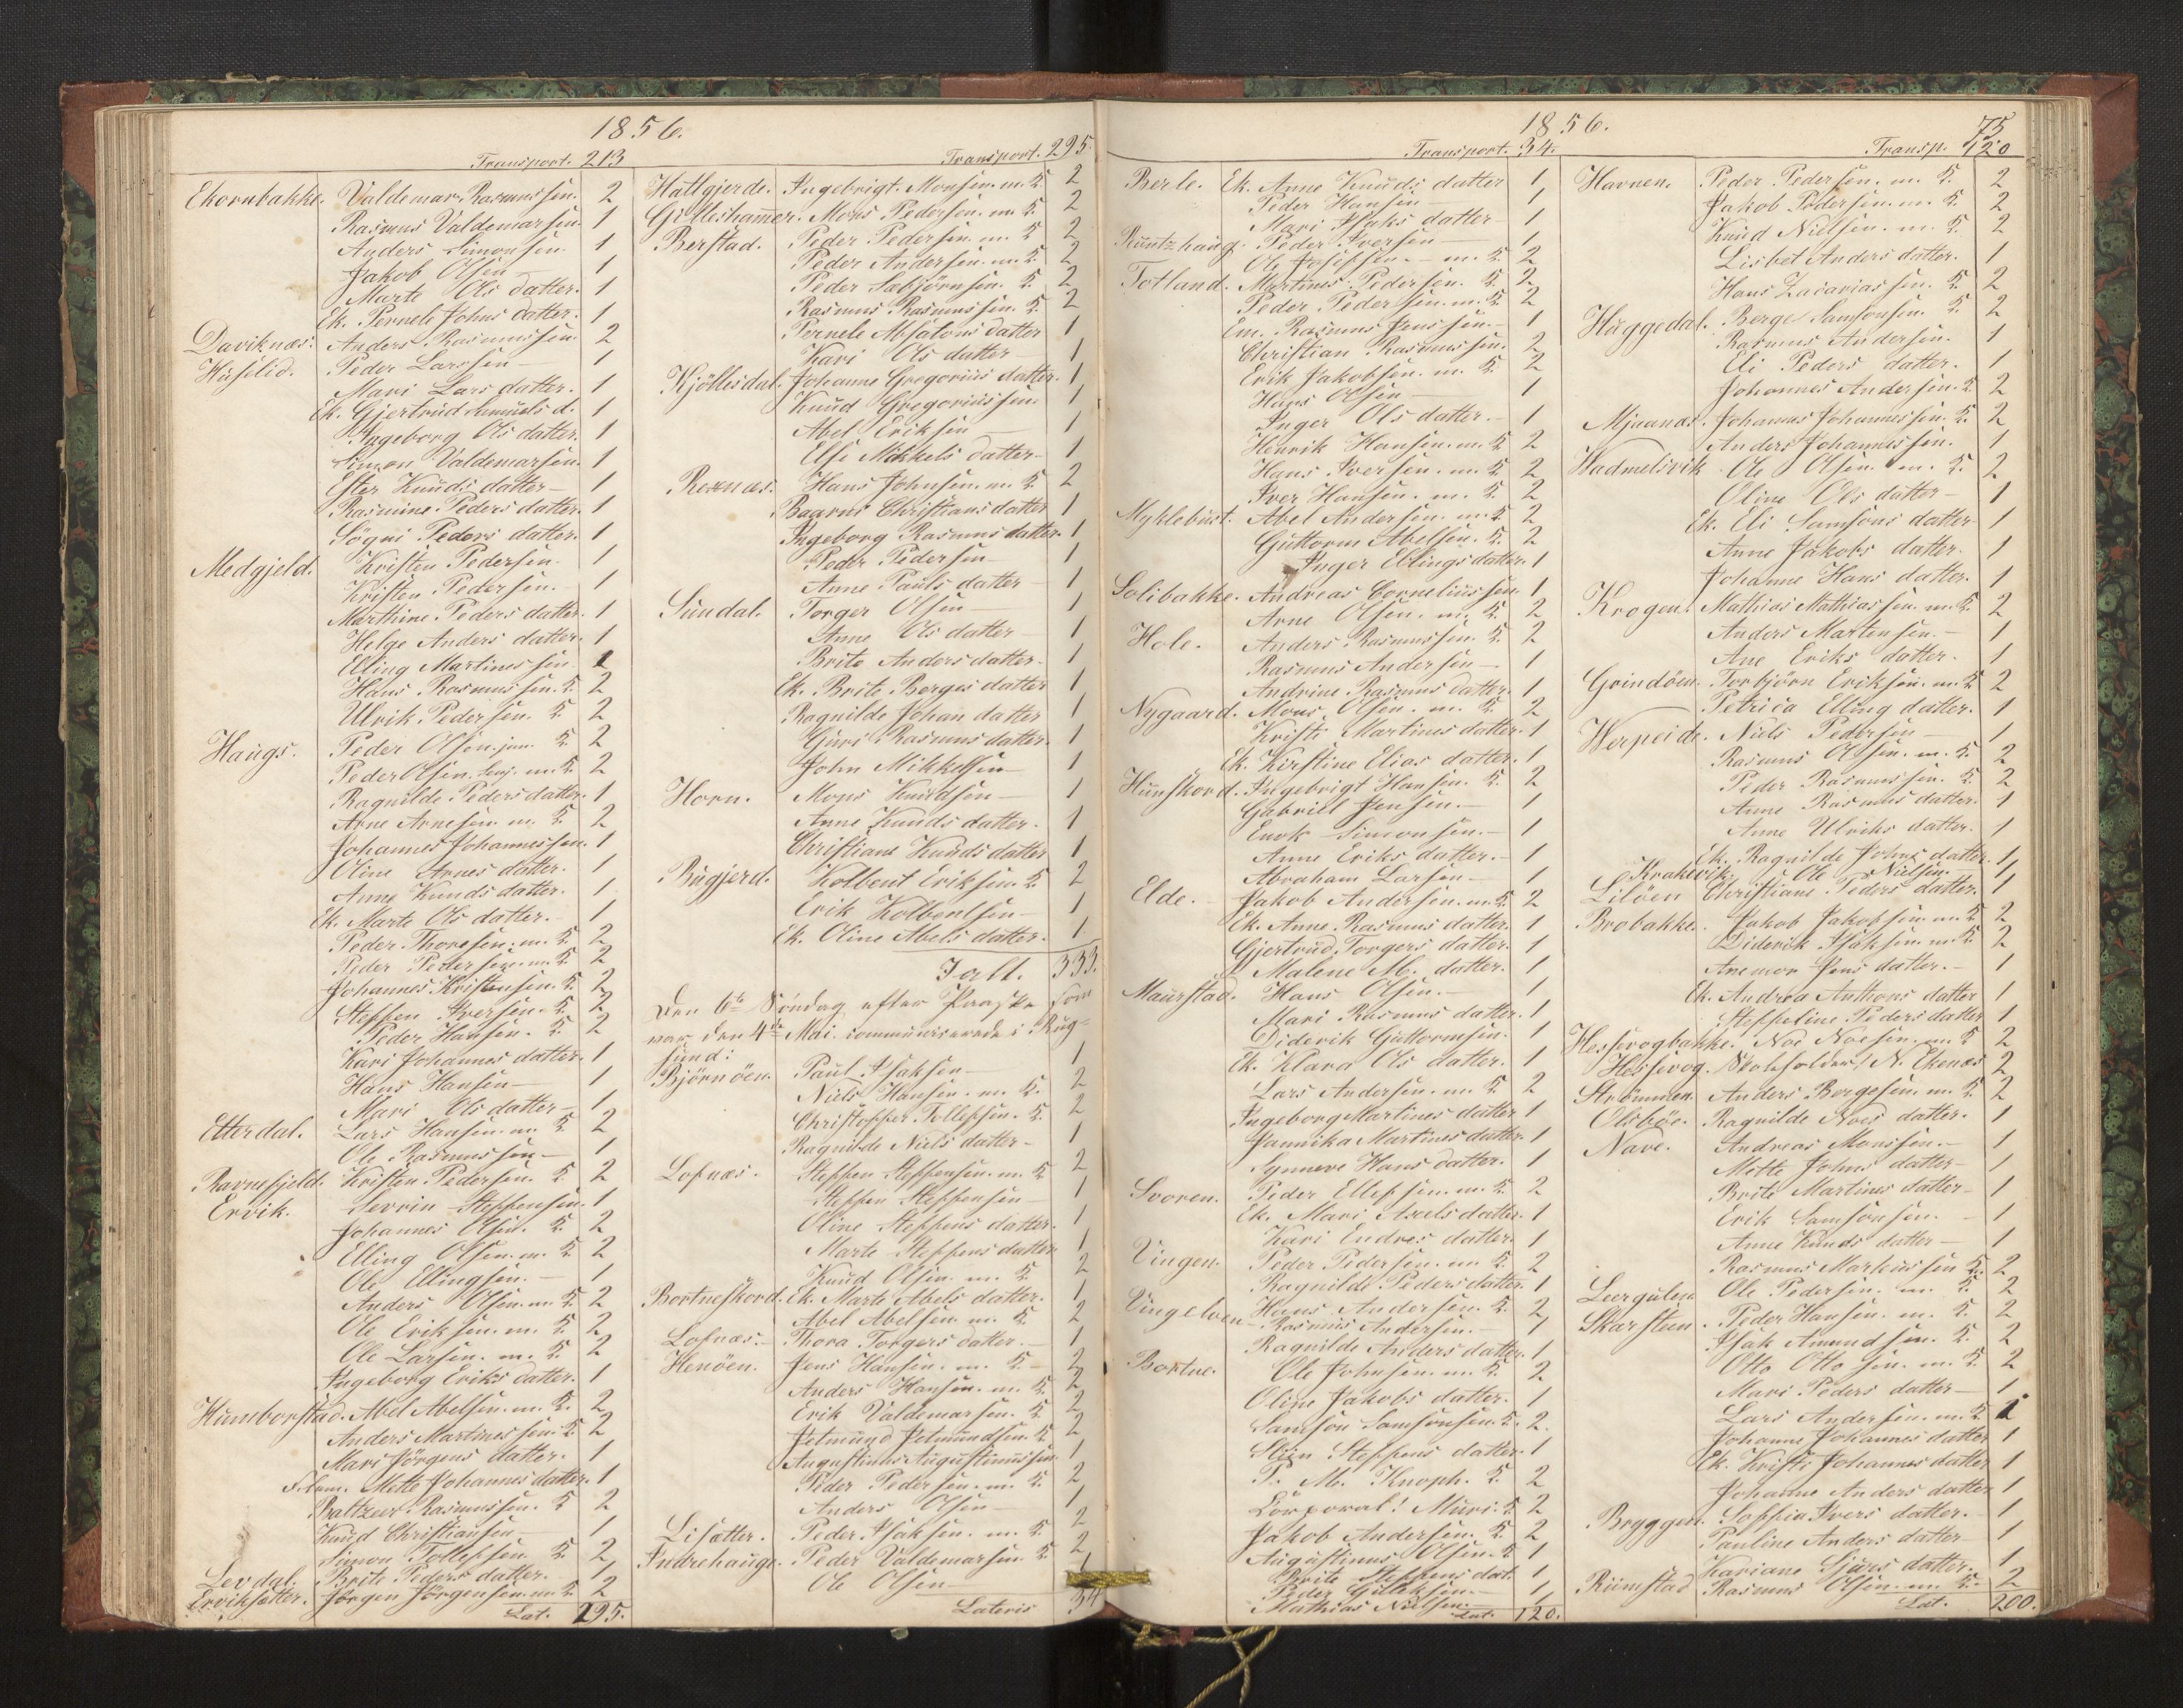 1856.
Transport. 213
Ekornbakke. Valdemar Rasmussen. 2
Rasmus Valdemarsen 1
Anders Simonsen. 1
Jakob Olsen 1
Marte Ols datter. 1
Ek. Pernele Johns datter. 1
Daviknæs. Anders Rasmussen. 2
Húselid. Peder Larssen 1
Mari Lars datter. 1
Ek. Gjertrúd Samúels d. 1
Ingeborg Ols datter. 1
Simon Valdemarsen. 1
Ester Knúds datter 1
Rasmine Peders datter. 1
Sögni Peders datter. 1
Medgjeld. Kristen Pedersen 1
Kristen Pedersen. 1
Marthine Peders datter. 1
Helge Anders datter. 1
Elling Martinussen 1
Hans Rasmussen. K. 2
Ulrik Pedersen. K. 2
Haúgs. Peder Olsen. jun. K. 2
Peder Olsen. Senj. m. K. 2
Ragnilde Peders datter. 1
Arne Arnesen. m. K. 2
Johannes Johannessen. 1
Oline Arnes datter. 1
Anne Knuds datter. 1
Ek. Marte Ols datter. 1
Peder Thoresen. m. K. 2
Peder Pedersen. m. K. 2
Johannes Kristensen. K. 2
Steffen Iversen. K. 2
Peder Hansen. K. 2
Kari Johannes datter. 1
Hans Hansen 1
Mari Ols datter 1
Etterdal. Lars Hansen. m. K. 2
Ole Rasmussen 1
Ravnefjeld. Kristen Pedersen. K. 2
Ervik. Sevrin Steffensen. 1
Johannes Olsen. K. 2
Elling Olsen. m. K. 2
Ole Ellingsen. 1
Anders Olsen. m. K. 2
Ole Eriksen. m. K. 2
Ole Larsen. m. K. 2
Ingeborg Eriks datter. 1
Húmborstad. Abel Abelsen. m. K. 2
Anders Martinussen K. 2
Mari Jörgens datter. 1
Mette Johannes datter. 1
Baltzer Rasmussen. K. 2
Knúd Christiansen 1
Simon Tollefsen K. 2
Levdal. Brite Peders datter. 1
Erviksætter. Jörgen Jörgensen. m. K. 2
Lat. 295.
Transport. 295.
Hallgjerde. Ingebrigt Monsen. m. K. 2
Gilleshammer. Mons Pedersen. m. K. 2
Berstad. Peder Pedersen. m. K. 2
Peder Andersen. m. K. 2
Peder Sæbjörnsen. K. 2
Rasmus Rasmussen. K. 2
Pernele Absalons datter 1
Kari Ols datter 1
Kjöllesdal. Johanne Gregoriús datter. 1
Knúd Gregoriússen. 1
Abel Eriksen 1
Else Mikkels datter 1
Rexnæs. Hans Johnsen. m. K. 2
Baarni Christians datter 1
Ingeborg Rasmus datter. 1
Peder Pedersen 1
Anne Pauls datter 1
Súndal. Torger Olsen 1
Anne Ols datter 1
Brite Anders datter. 1
Ek. Brite Borges datter 1
Ragnilde Johan datter 1
Gúri Rasmus datter. 1
John Mikkelsen 1
Horn. Mons Knúdsen 1
Anne Knuds datter. 1
Christiane Knúds datter 1
Búgjerd. Kolbent Eriksen. K. 2
Erik Kolbentsen 1
Ek. Oline Abels datter. 1
I alt. 333.
Den 6te Söndag efter Paaske som
var den 4de Mai communicerede i Rúg-
súnd:
Björnöen. Paúl Isaksen 1
Niels Hansen. m. K. 2
Christopher Tollefsen. K. 2
Ragnilde Niels datter 1
Lofnæs. Steffen Steffensen. m. K. 2
Steffen Steffensen 1
Oline Steffens datter. 1
Marte Steffens datter. 1
Knúd Olsen. m. K. 2
Bortneskord. Ek. Marte Abels datter. 1
Abel Abelsen. m. K. 2
Lofnæs. Thora Torgers datter. 1
Henöen. Jens Hansen. m. K. 2
Anders Hansen. m. K. 2
Erik Valdemarsen. K. 2
Jetmúnd Jetmúndsen. K. 2
Augustinús Augustinússen 1
Peder Pedersen. m. K. 2
Anders Olsen 1
Lisætter. Peder Isaksen. m. K. 2
Indrehaúge. Peder Valdemarsen K. 2
Ole Olsen 1
Lateris 34
1856. 75
Transport. 34.
Berle. Ek. Anne Knúds datter 1
Peder Hansen 1
Mari Isaks datter 1
Rúntzhaúg. Peder Iversen 1
Ole Josefsen. m. K. 2
Totland. Martinus Pedersen. K. 2
Peder Pedersen. m. K. 2
Em. Rasmus Jenssen. 1
Christian Rasmussen. 2
Erik Jakobsen. m. K. 2
Hans Olsen 1
Inger Ols datter. 1
Henrik Hansen. m. K. 2
Hans Iversen. m. K. 2
Iver Hansen. m. K. 2
Myklebúst. Abel Andersen. m. K. 2
Gúttorm Abelsen. K. 2
Inger Ellings datter. 1
Solibakke. Andreas Corneliússen. 1
Arne Olsen. m. K. 2
Hole. Anders Rasmussen. K. 2
Rasmus Andersen 1
Andrine Rasmus datter. 1
Nygaard. Mons Olsen. m. K. 2
Kristi Martines datter. 1
Ek. Kirstine Elias datter. 1
Húnskord. Ingebrigt Hansen. K. 2
Gabriel Jensen. 1
Enok Simonsen. 1
Anne Eriks datter. 1
Abraham Larsen 1
Elde. Jakob Andersen. m. K. 2
Ek. Anne Rasmus datter. 1
Gjertrúd Torgers datter. 1
Malene M. datter. 1
Maúrstad. Hans Olsen. 1
Mari Rasmus datter. 1
Diderik Gúttormsen. 1
Ek. Klara Ols datter. 1
Lars Andersen. m. K. 2
Ingeborg Martines datter 1
Jannika Martines datter. 1
Synneve Hans datter. 1
Svoren. Peder Ellefsen. m. K. 2
Ek. Mari Axels datter. 1
Kari Endres datter. 1
Vingen. Peder Pedersen. m. K. 2
Ragnilde Peders datter. 1
Vingelven Hans Andersen. K. 2
Rasmus Andersen. 1
Ragnilde Anders datter. 1
Bortne. Ole Johnsen. m. K. 2
Oline Jakobs datter. 1
Samson Samsonsen. K. 2.
Steffens datter. 1
M. Knoph. K. 2
Corporal! Múri. K. 2
Jakob Andersen. K. 2
Augústinus Olsen. K. 1
Brite Steffens dat. 1
Peder Gúlaksen. 1
Mathias Nielsen. 1
Lat. 120.
Transp. 120
Havnen. Peder Pedersen. m. K. 2
Jakob Pedersen. m. K. 2
Knúd Nielsen. m. K. 2
Lisbet Anders datter. 1
Hans Zacariassen. K. 2
Húggedal. Berge Samsonsen. K. 2
Rasmus Andersen. 1
Eli Peders datter. 1
Johannes Andersen. K. 2
Mjaanæs. Johannes Johannessen. K. 2
Anders Johannessen. 1
Vadmelsvik Ole Olsen. m. K. 2
Oline Ols datter 1
Ek. Eli Samsons datter 1
Anne Jakobs datter. 1
Johanne Hans datter. 1
Krogen. Mathias Mathiassen. m. K. 2
Anders Martensen. 1
Ane Eriks datter. 1
Grindöen. Torbjörn Eriksen. m. K. 2
Petrica Elling datter. 1
Verpeide. Niels Pedersen 1
Rasmus Olsen. m. K. 2
Peder Rasmussen. K. 2
Anne Rasmus datter. 1
Anne Ulriks datter. 1
Ek. Ragnilde Johns datter. 1
Krakevik. Ole Nielsen. 1
Lilöen Christiane Peders datter. 1
Brobakke. Jakob Jakobsen. m. K. 2
Diderik Isaksen. m. K. 2
Anemor Jens datter. 1
Ek. Andrea Anthons datter 1
Steffeline Peders datter 1
Hessevogbakke. Noe Noesen. m. K. 2
Hessevog. N. Ekenæs 2
Strömmen. Anders Borgesen. m. K. 2
Olsböe. Ragnilde Noes datter. 1
Nave. Andreas Monssen. 1
Mette Johns datter 1
Brite Martines datter 1
Erik Samsonsen. 1
Anne Knúds datter 1
Rasmus Markússen K. 2
Lurgulen. Ole Pedersen. m. K. 2
Skarsteen. Peder Hansen. m. K. 2
Isak Amundsen. K. 2
Otto Ottosen. m. K. 2
Mari Peders datter 1
Lars Andersen. m. K. 2
Johanne Johannes datter 1
Ek. Kristi Johannes datter 1
Johanne Anders datter 1
Bryggen. Soffia Ivers datter. 1
Pauline Anders datter 1
Kariane Sjurs datter. 1
Rimstad Rasmus Olsen. m. K. 2
Lat. 200.